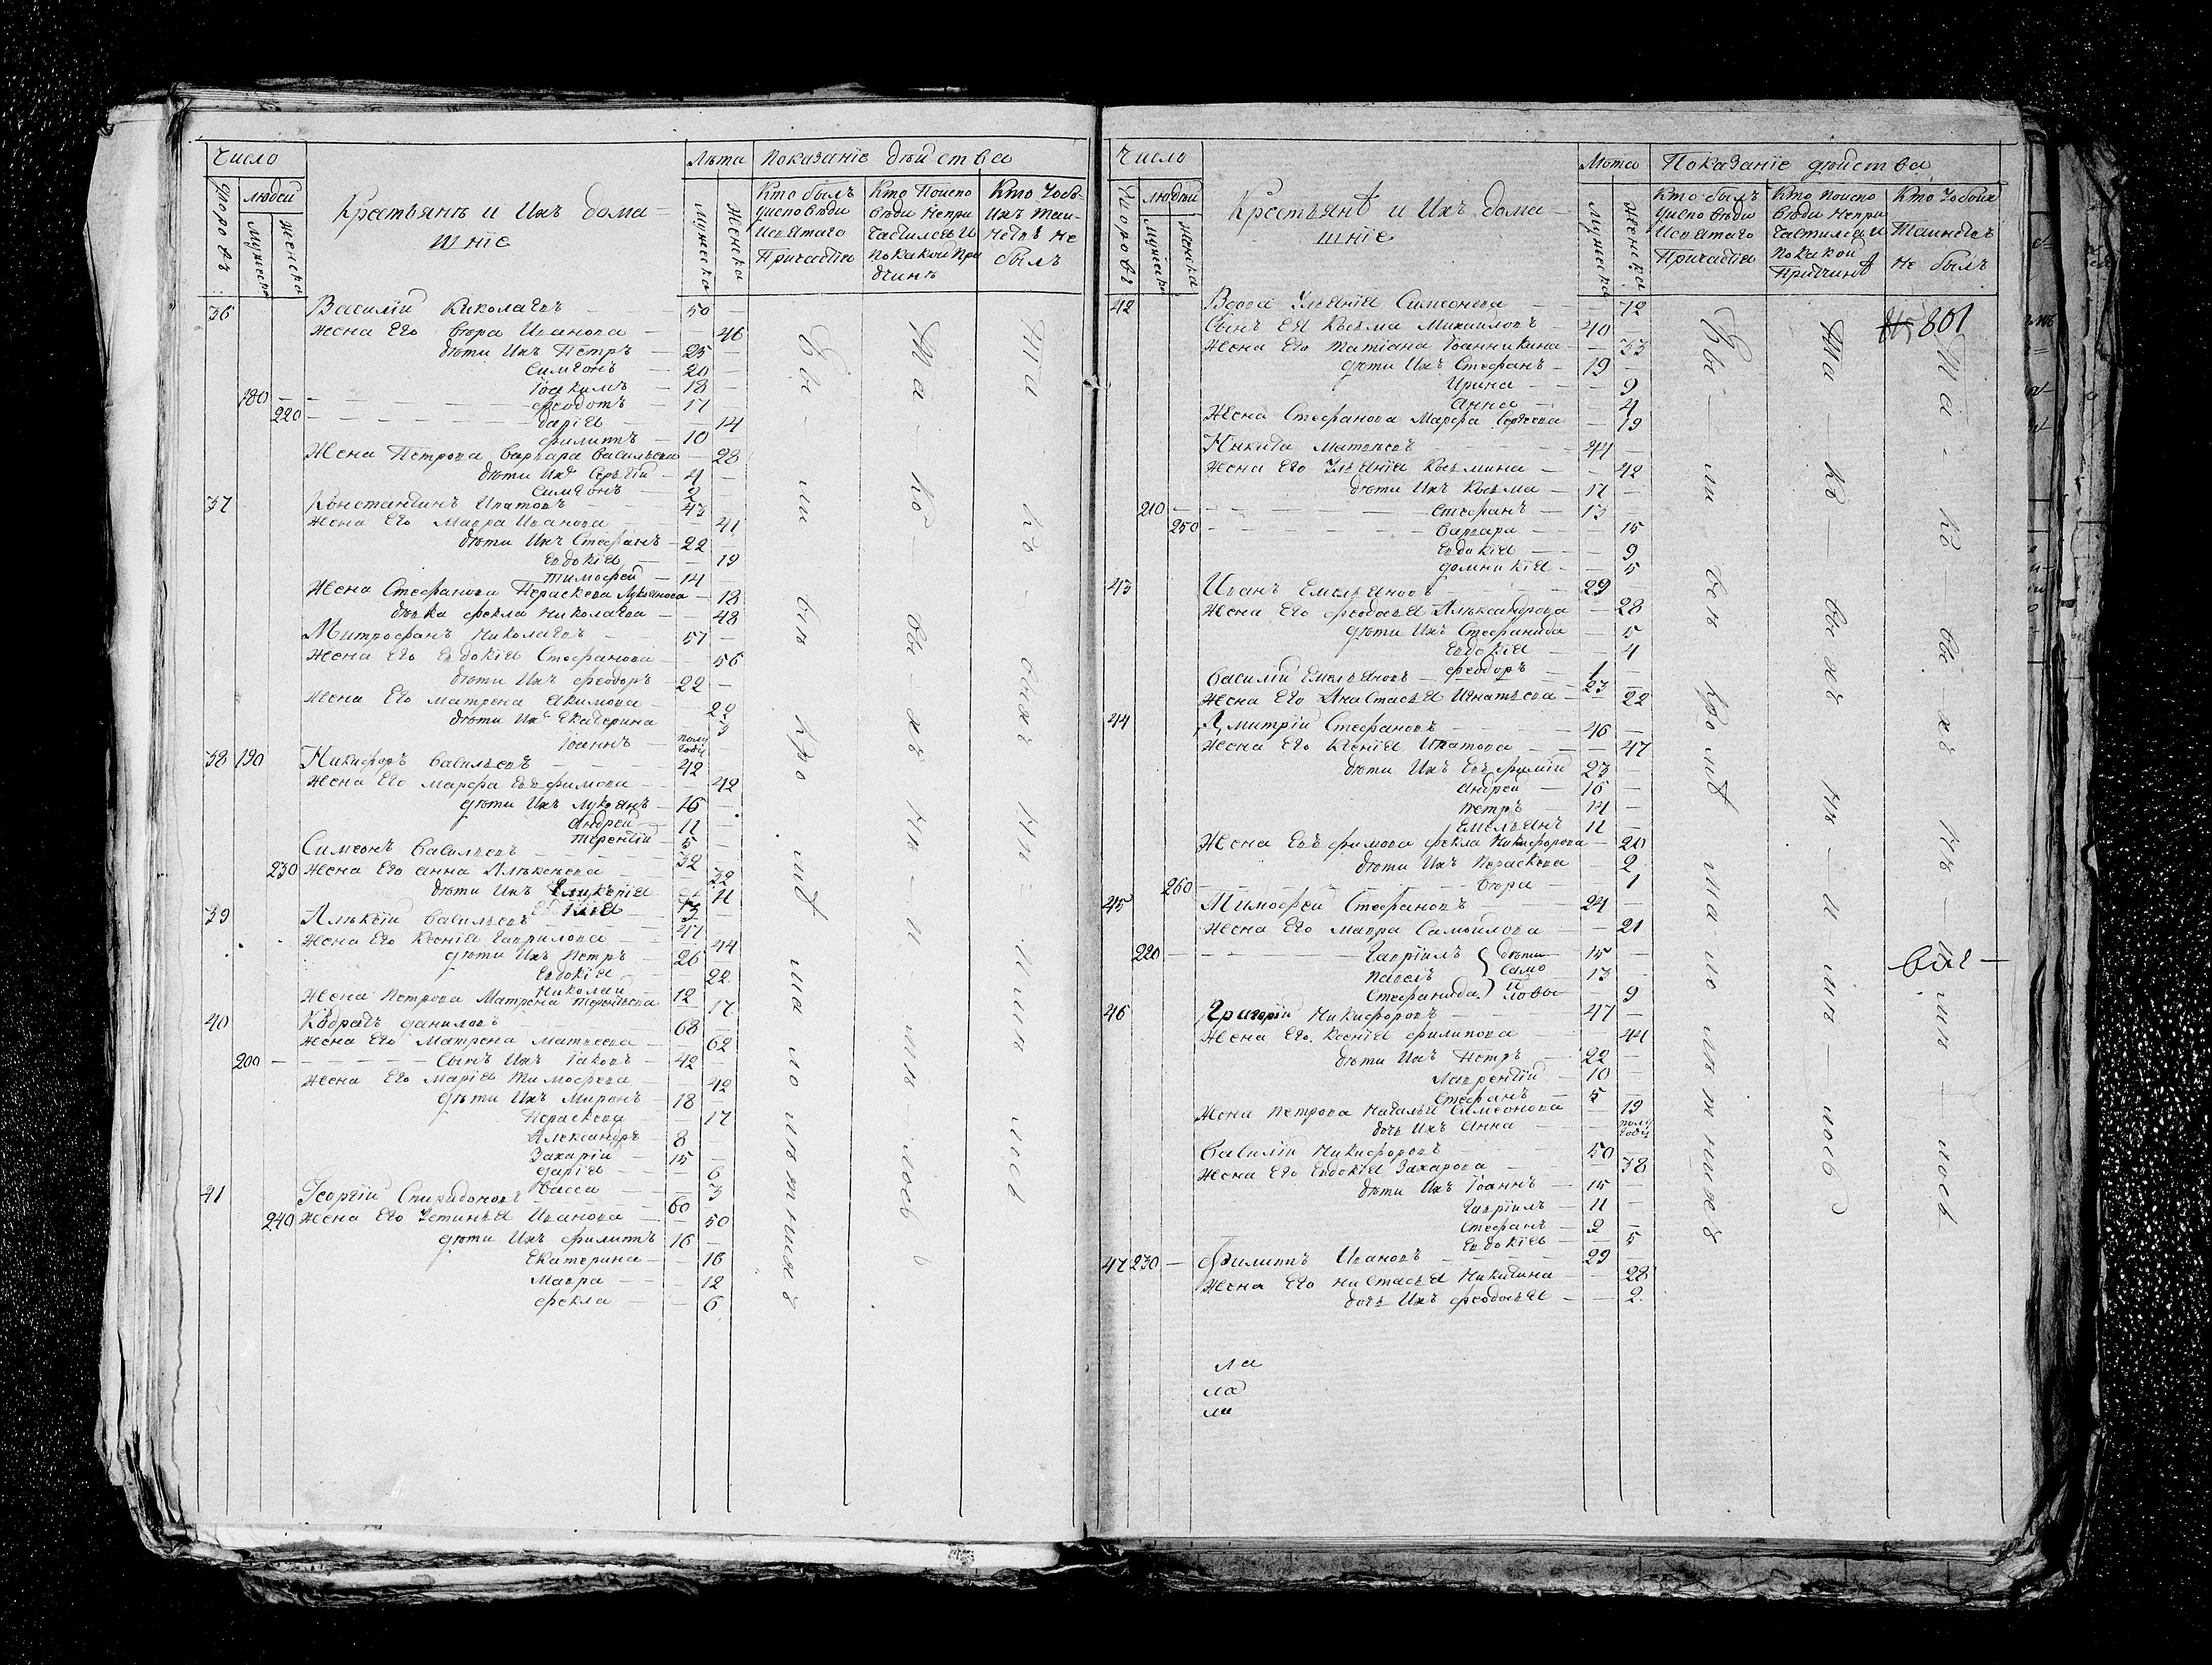 Число
Лѣта Показанiе дѣйства
дворовъ
людей
Мужеска
Женска
Крестьянъ и Ихъ дома-
шнiе
Мужеска
Женска
Кто былъ
уисповѣди
исвятаго
Причастiя
Кто Поиспо
вѣди Непри
частился И
покакой При
чинѣ
Кто Уобо-
ихъ Таи-
нствъ не
былъ
36 Василiй Николаевъ 50
Жена Его Вѣра Иванова 46
дѣти Ихъ Петръ 25
Симеонъ 20
Iоакимъ 18
180 феодотъ 17
220 дарiя 14
филиппъ 10
Жена Петрова варвара васильева 28
дѣти Ихъ Сергѣй 4
Симеонъ 2
37 Константинъ Ипатовъ 43
Жена Его Мавра Иванова 41
дѣти Ихъ Стефанъ 22
Евдокiя 19
тимофей 14
Жена Стефанова Параскева Лукьянова 18
дѣвка фекла николаева 48
Митрофанъ Николаевъ 57
Жена Его Евдокiя Стефанова 56
дѣти Ихъ феодоръ 22
Жена Его матрена якимова 22
дѣти Ихъ Екатерина 3
Iоаннъ полу годъ
38 190 Никифоръ васильевъ 42
Жена Его марфа Евфимова 42
дѣти Ихъ лукьянъ 16
андрей 11
терентiй 5
Симеонъ васильевъ 32
230 Жена Его анна Алексѣева 32
дѣти Ихъ Гликерiя 11
39 Алексѣй васильевъ 47
Жена Его Ксенiя Гаврилова 44
дѣти Ихъ Петръ 26
Евдокiя 22
Николай 12
Жена Петрова Матрена терентьева 17
40 Кодратъ даниловъ 68
Жена Его Матрена Матвеева 62
200 Сынъ Ихъ Iаковъ 42
Жена Его Марiя Тимофеева 42
дѣти Ихъ Миронъ 18
Параскева 17
Александръ 8
Захарiй 15
дарiя 6
Васса 3
41 Георгiй Спиридоновъ 60
240 Жена Его Устинья Иванова 50
дѣти Ихъ филиппъ 16
Екатерина 16
Мавра 12
фекла 6
Число
Лѣта Показанiе дѣйства
Дворовъ
людей
Мужеска
Женска
Крестьянъ и Ихъ дома-
шнiе
Мужеска
Женска
Кто былъ
уисповѣди
исвятаго
Причастiя
Кто Поиспо
вѣди Непри
частился И
покакой
Причинѣ
Кто Уобоихъ
Таинствъ
не былъ
801
42 Вдова Ульянiя Симеонова 72
Сынъ Ея Козьма Михайловъ 40
Жена Его Татiана Iоанникина 33
дѣти Ихъ Стефанъ 19
Ирина 9
Анна 4
Жена Стефанова Марфа Сергеева 19
Никита матвѣевъ 44
Жена Его Ульянiя Козьмина 42
дѣти Ихъ Козьма 17
210 Стефанъ 13
250 варвара 15
Евдокiя 9
домникiя 5
43 Иванъ Емельяновъ 29
Жена Его феодосья Александрова 28
дѣти Ихъ Стефанида 5
Евдокiя 4
феодоръ 1
василiй Емельяновъ 23
Жена Его Анастасья Игнатьева 22
44 Дмитрiй Стефановъ 46
Жена Его Ксенiя Ипатова 47
дѣти Ихъ Евфимiй 23
андрей 16
петръ 14
Емельянъ 11
Жена Евфимова фекла Никифорова 20
дѣти Ихъ Параскева 2
260 вѣра 1
45 Тимофей Стефановъ 24
Жена Его Мавра Самойлова 21
220 Гаврiилъ дѣти 15
Павелъ Само 13
Стефанида иловы 9
46 Григорiй Никифоровъ 47
Жена Его Ксенiя филипова 44
дѣти Ихъ Петръ 22
лаврентiй 10
Стефанъ 5
Жена Петрова наталья Симеонова 19
дочь Ихъ Анна полу годъ
василiй Никифоровъ 50
Жена Его Евдокiя Захарова 38
дѣти Ихъ Iоаннъ 15
Гаврiилъ 11
Стефанъ 2
Евдокiя 5
47 230 филиппъ Ивановъ 29
Жена Его настасья Никитина 28
дочь Ихъ феодосья 2
ла
ла
ла